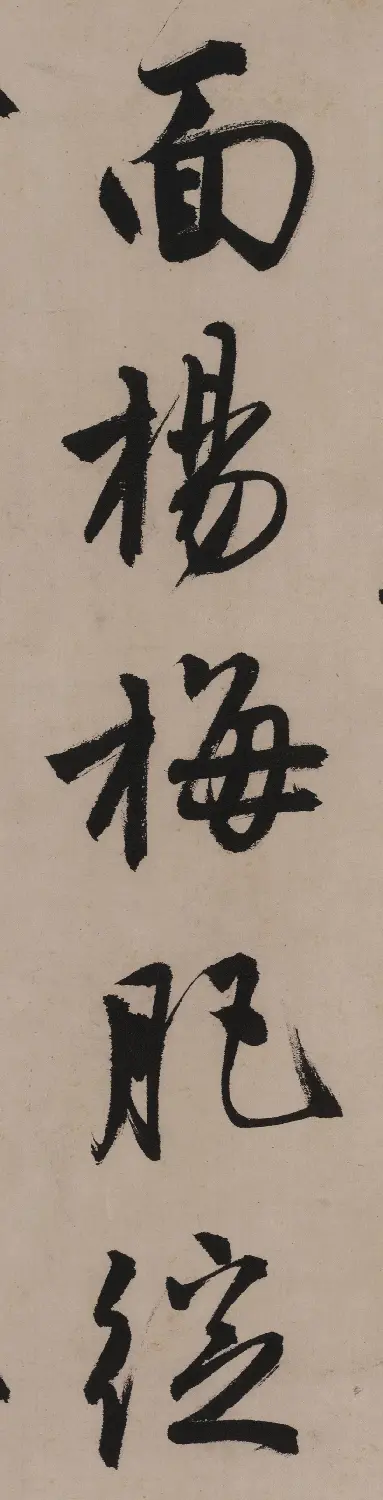 面楊梅肥綻